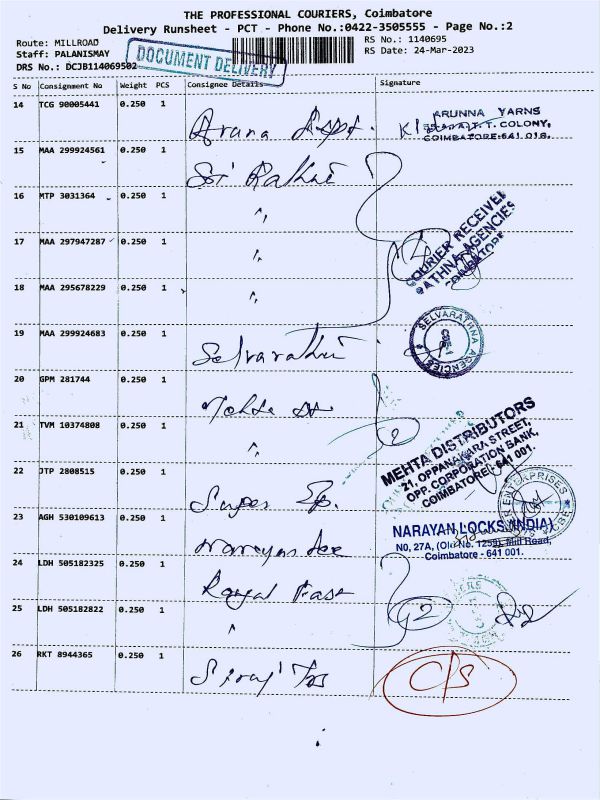 THE PROFESSIONAL COURIERS, Coimbatore
Delivery Runsheet - PCT - Phone No.:0422-3505555 - Page No.:2
Route: MILLROAD RS No.: 1140695
Staff: PALANISMAY RS Date: 24-Mar-2023
DRS No.: DCJB114069502
DOCUMENT DELIVERY
S No Consignment No Weight PCS Consignee Details Signature
14 TCG 90005441 0.250 1
Aruna
ARUNNA YARNS
T. COLONY,
COIMBATORE-641 018.
15 MAA 299924561 0.250 1
Sri Rathni
16 MTP 3031364 0.250 1
"
COURIER RECEIVED
RATHNA AGENCIES
COIMBATORE
17 MAA 297947287 0.250 1
"
18 MAA 295678229 0.250 1
"
19 MAA 299924683 0.250 1
Selvarathni
SELVARATHNA AGENCIES
20 GPM 281744 0.250 1
Mehta
21 TVM 10374808 0.250 1
"
2
MEHTA DISTRIBUTORS
21, OPPANAKARA STREET,
OPP. CORPORATION BANK,
COIMBATORE - 641 001.
22 JTP 2808515 0.250 1
Super
ENTERPRISES
23 AGH 530109613 0.250 1
Narayan
NARAYAN LOCKS (INDIA)
NO, 27A, (Old No. 1259), Mill Road,
Coimbatore - 641 001.
24 LDH 505182325 0.250 1
Royal
25 LDH 505182822 0.250 1
"
2
26 RKT 8944365 0.250 1
Siraj
C/S